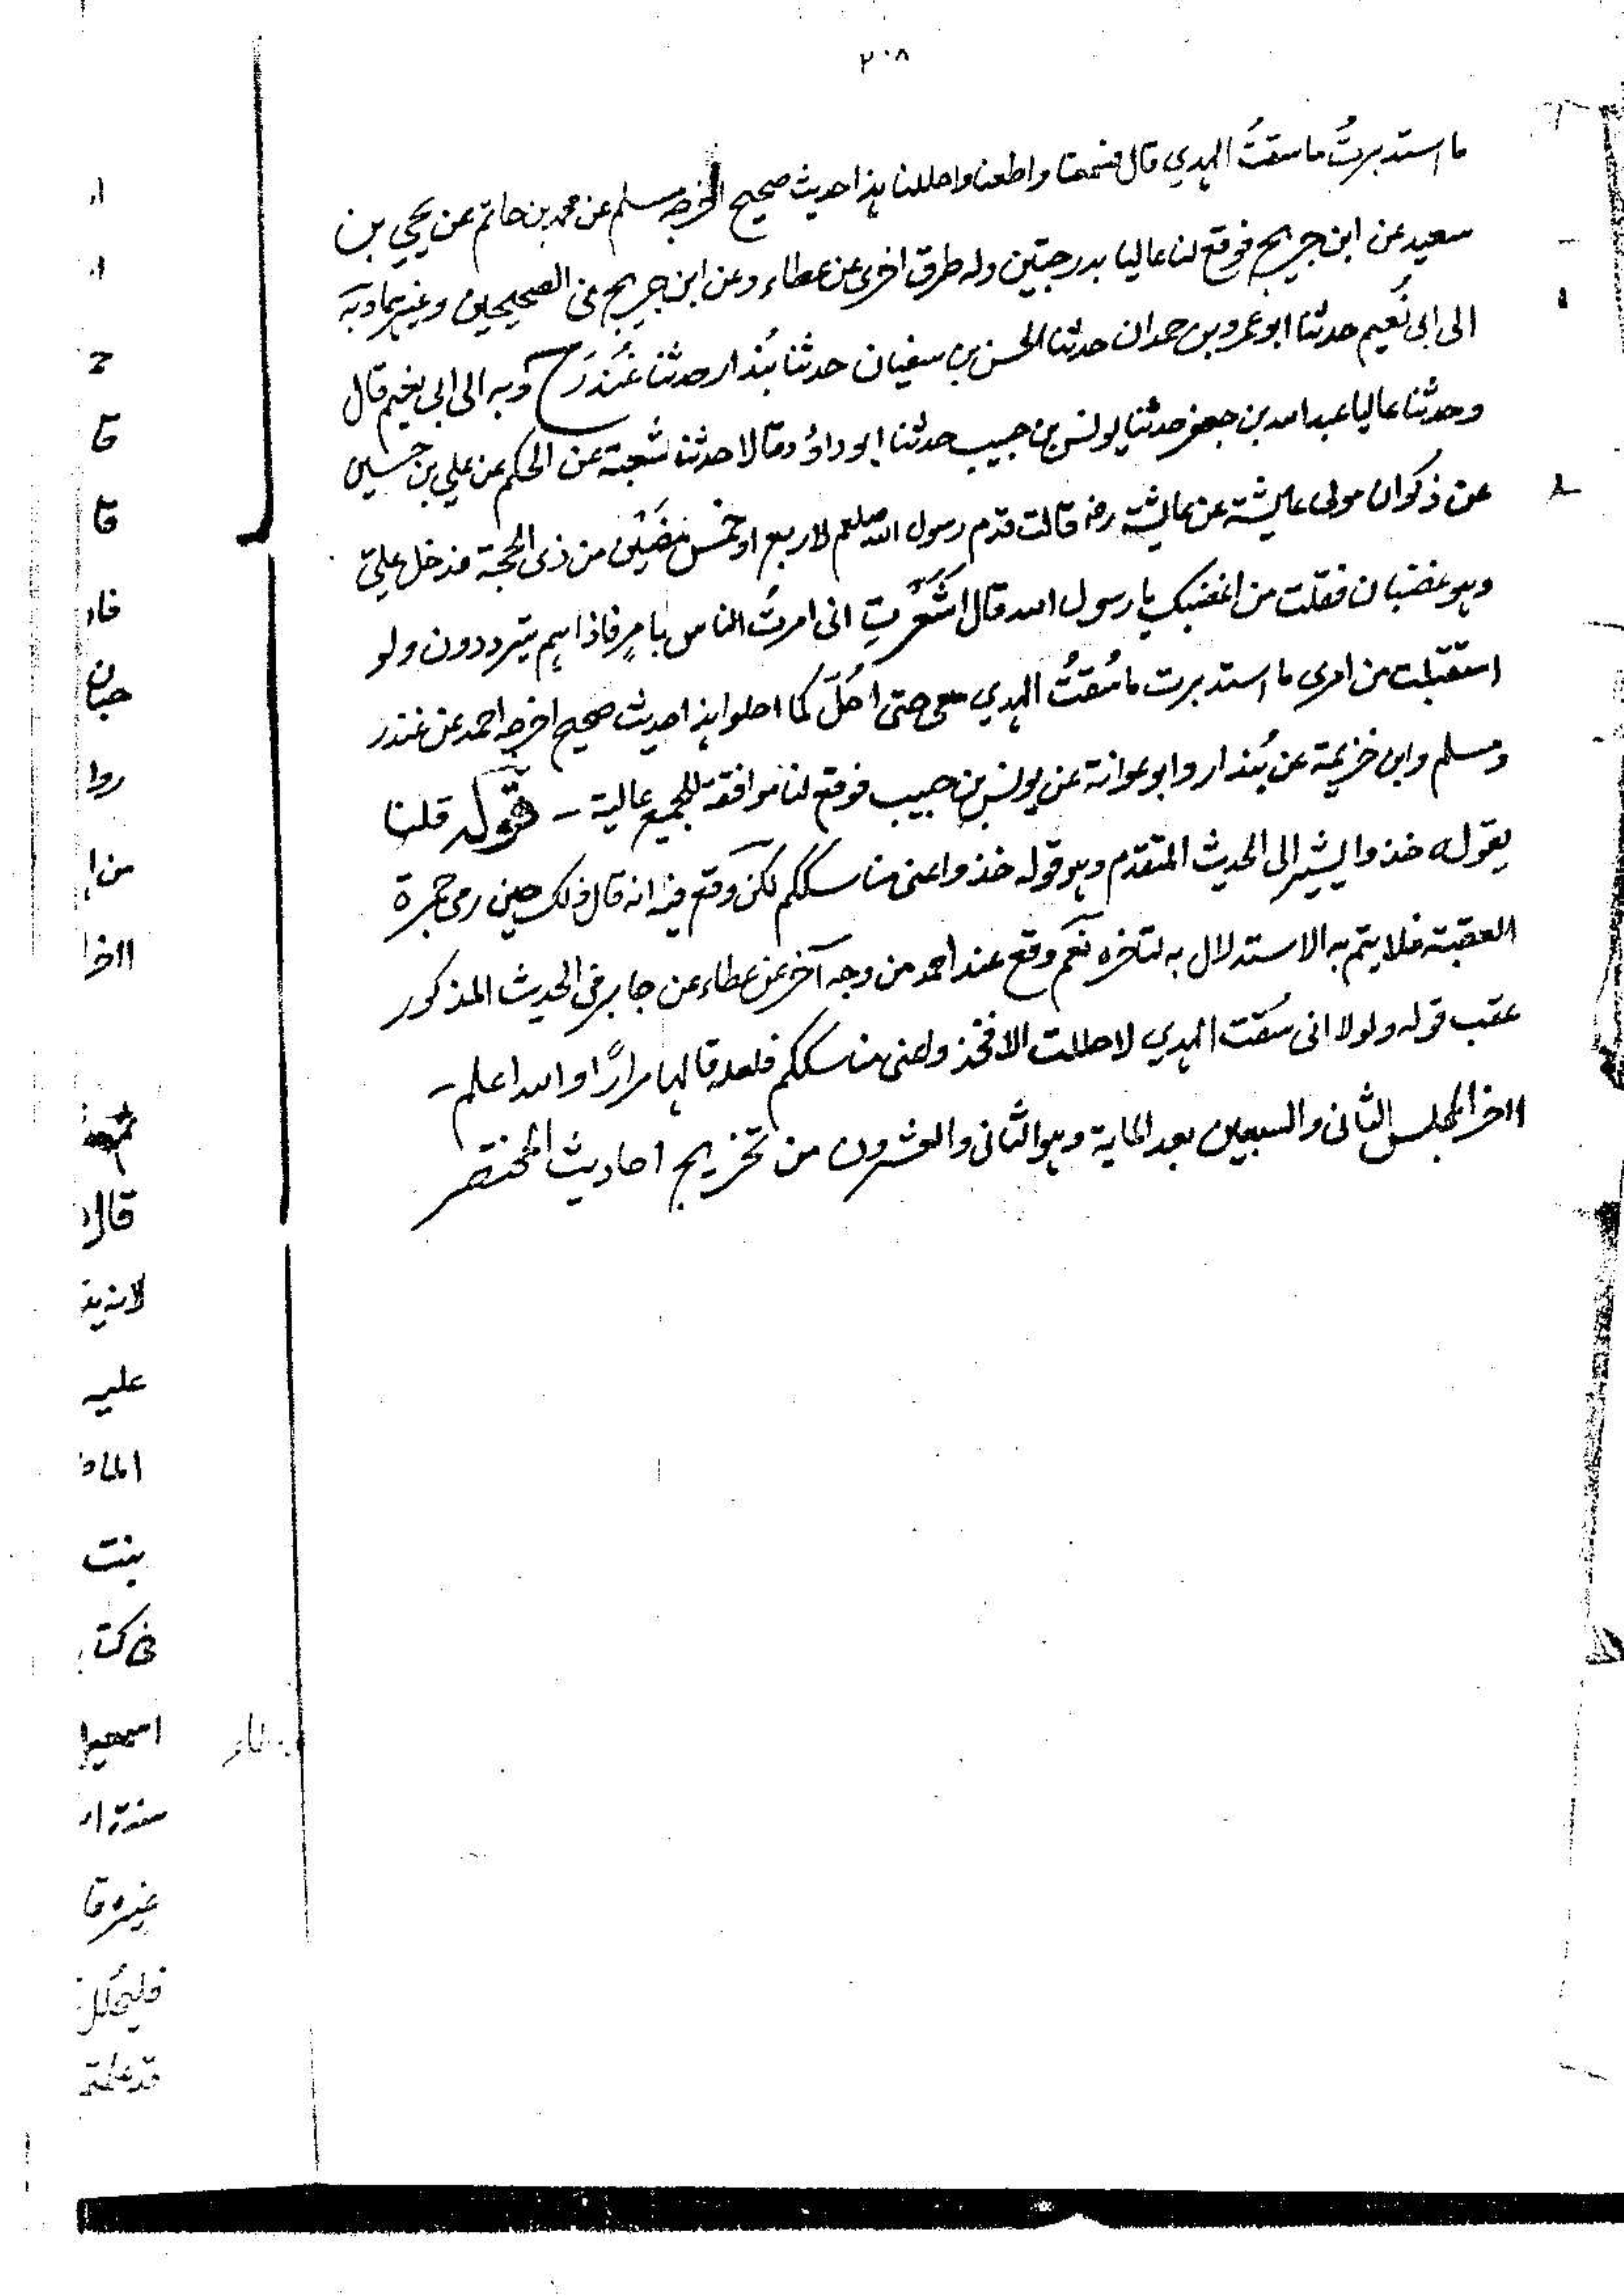 ٢٠٨
ما استدبرتُ ما سقتُ الهدي قال فسمعنا واطعنا واحللنا هذا حديث صحيح اخرجه مسلم عن محمد بن حاتم عن يحيي بن
سعيد عن ابن جريج فوقع لنا عاليا بدرجتين وله طرق اخرى عن عطاء وعن ابن جريج فى الصحيحين وغيرهما وبه
الى ابى نُعيم حدثنا ابو عمرو بن حمدان حدثنا الحسن بن سفيان حدثنا بُندار حدثنا غُندَر ح وبه الى ابى نعيم قال
وحدثنا عاليا عبد الله بن جعفر حدثنا يونس بن حبيب حدثنا ابو داؤد قالا حدثنا شعبة عن الحكم عن علي بن حسين
عن ذكوان مولى عايشة عن عايشة رض قالت قدم رسول الله صلعم لاربع او خمس مضَيْن من ذى الحجة فدخل عليّ
وهو غضبان فقلت من اغضبك يا رسول الله قال اشَعَرتِ انى امرتُ الناس بامرٍ فاذا هم يترددون ولو
استقبلت من امرى ما استدبرت ما سُقتُ الهدي معى حتى احُلّ كما احلوا هذا حديث صحيح اخرجه احمد عن غندر
ومسلم وابن خزيمة عن بُندار وابو عوانة عن يونس بن حبيب فوقع لنا موافقة للجميع عالية – قوله قلنا
بقوله خذوا يشير الى الحديث المتقدم وهو قوله خذوا عنى مناسككم لكن وقع فيه انه قال ذلك حين رمى جمرة
العقبة فلا يتم به الاستدلال به لتاخره نعم وقع عند احمد من وجه آخر عن عطاء عن جابر فى الحديث المذكور
عقب قوله ولولا انى سقت الهدي لاحللت الا فخذوا عنى مناسككم فلعله قالها مرارًا والله اعلم –
اخر المجلس الثانى والسبعين بعد الماية وهو الثانى والعشرون من تخريج احاديث المختصر